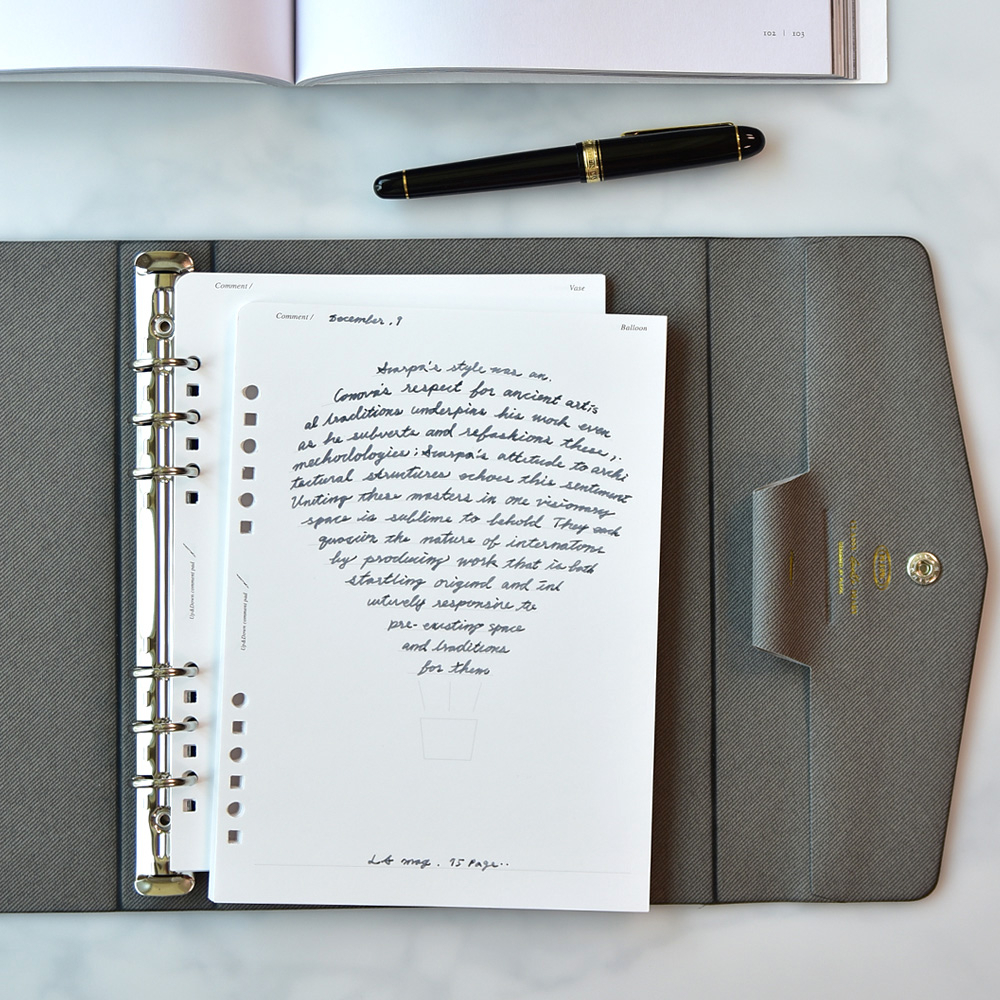 102 | 103
Comment /
Vase
Comment / December. 9
Balloon
Scarpa's style was an.
Canova's respect for ancient artis
al traditions underpins his work even
as he subverts and refashions these,.
mechodologies; Scarpa's attitude to archi
tectural structures echoes this sentiment
Uniting these masters in one visionary
space is sublime to behold They each
the nature of
by producing work that is both
startling and
responsive to
pre-existing space
and traditions
for them
Up&Down comment pad
Up&Down comment pad
mag. 75 Page..